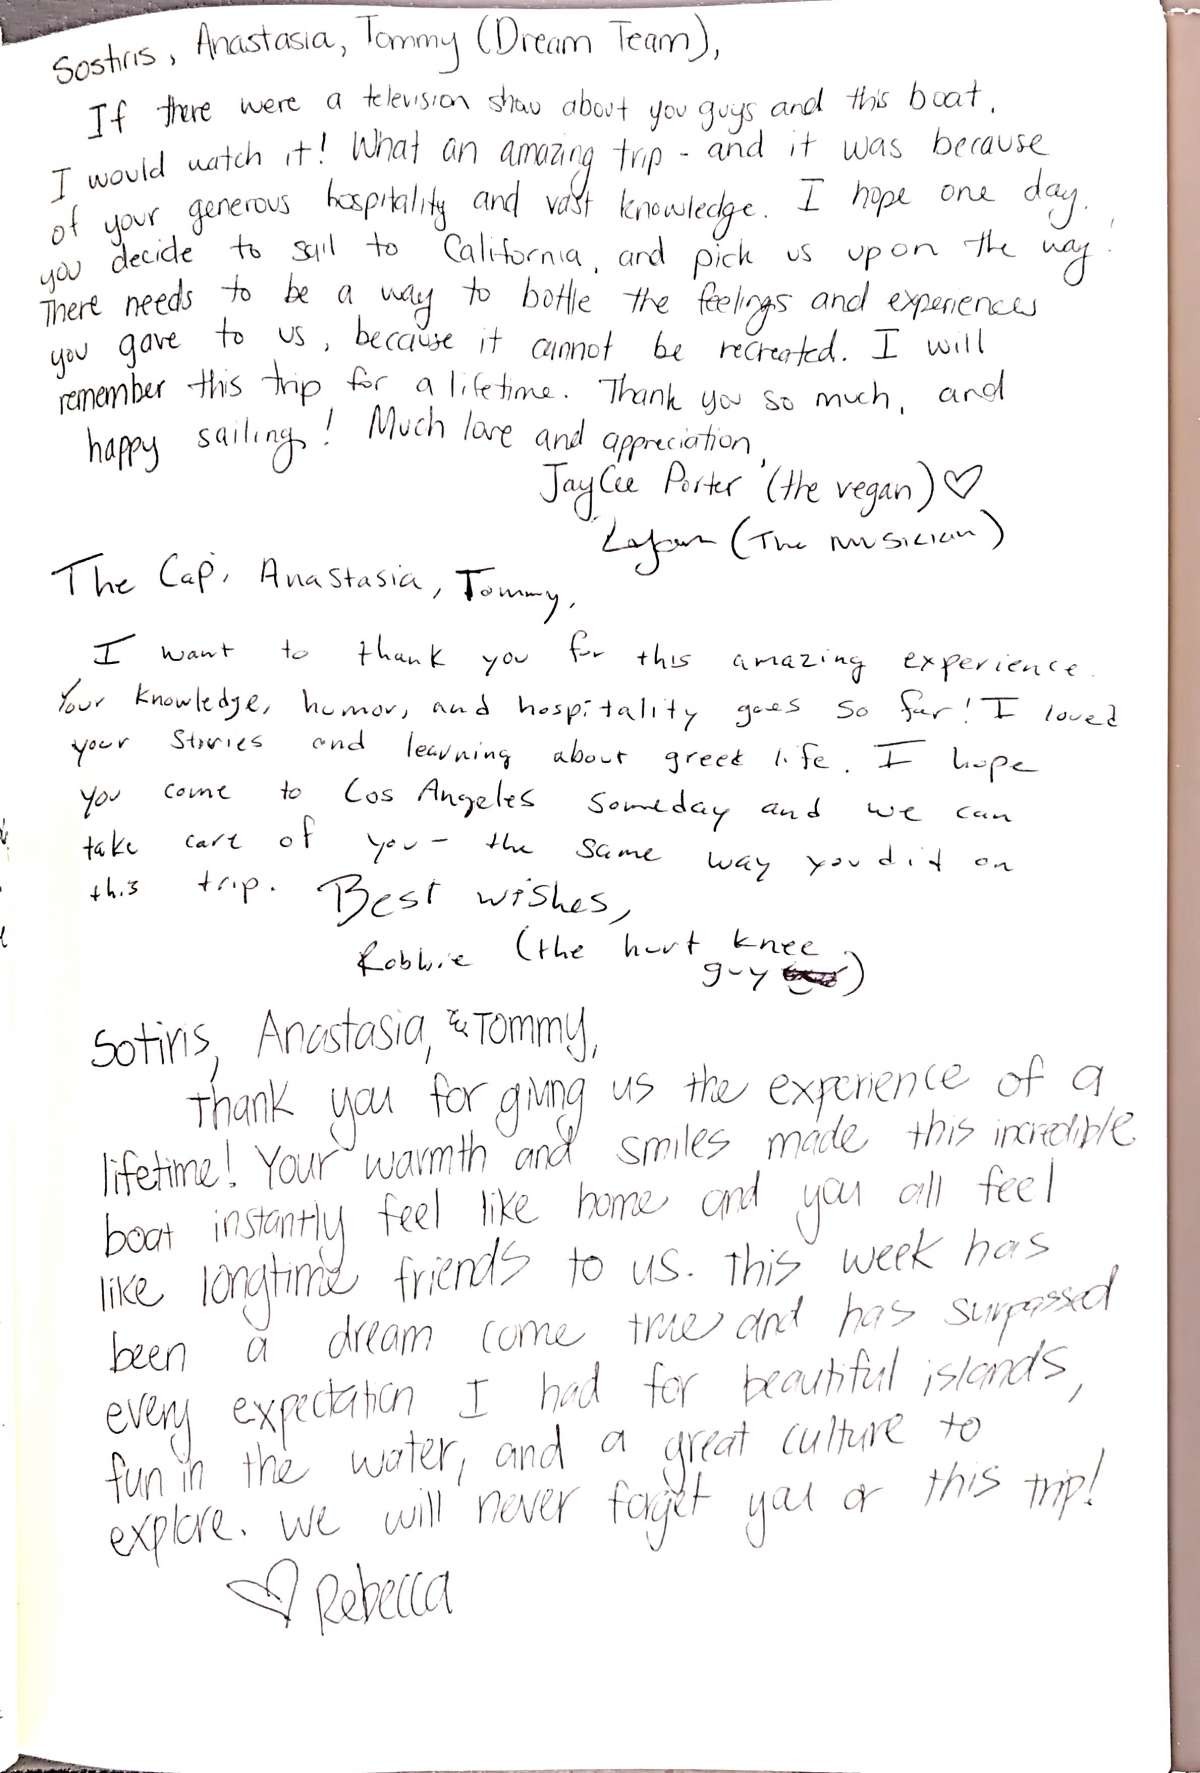 Sostiris, Anastasia, Tommy (Dream Team),
If there were a television show about you guys and this boat,
I would watch it! What an amazing trip - and it was because
of your generous hospitality and vast knowledge. I hope one day,
you decide to sail to California, and pick us up on the way!
There needs to be a way to bottle the feelings and experiences
you gave to us, because it cannot be recreated. I will
remember this trip for a lifetime. Thank you so much, and
happy sailing! Much love and appreciation,
JayCee Porter (the vegan) ♡
(The Musician)
The Cap, Anastasia, Tommy,
I want to thank you for this amazing experience.
Your knowledge, humor, and hospitality goes so far! I loved
your stories and learning about greek life. I hope
you come to Los Angeles someday and we can
take care of you - the same way you did on
this trip. Best wishes,
Robbie (the hurt knee
guy)
Sotiris, Anastasia, & Tommy,
Thank you for giving us the experience of a
lifetime! Your warmth and smiles made this incredible
boat instantly feel like home and you all feel
like longtime friends to us. This week has
been a dream come true and has surpassed
every expectation I had for beautiful islands,
fun in the water, and a great culture to
explore. We will never forget you or this trip!
♡ Rebecca